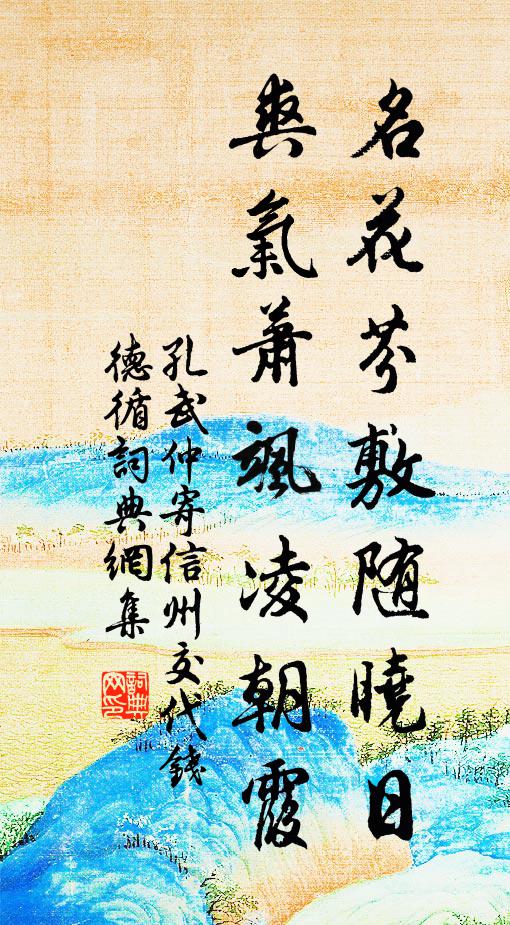 名花芬敷随曉日
爽氣蕭颯凌朝霞
孔武仲寄信州交代錢
德循詞典網集
詞典網印